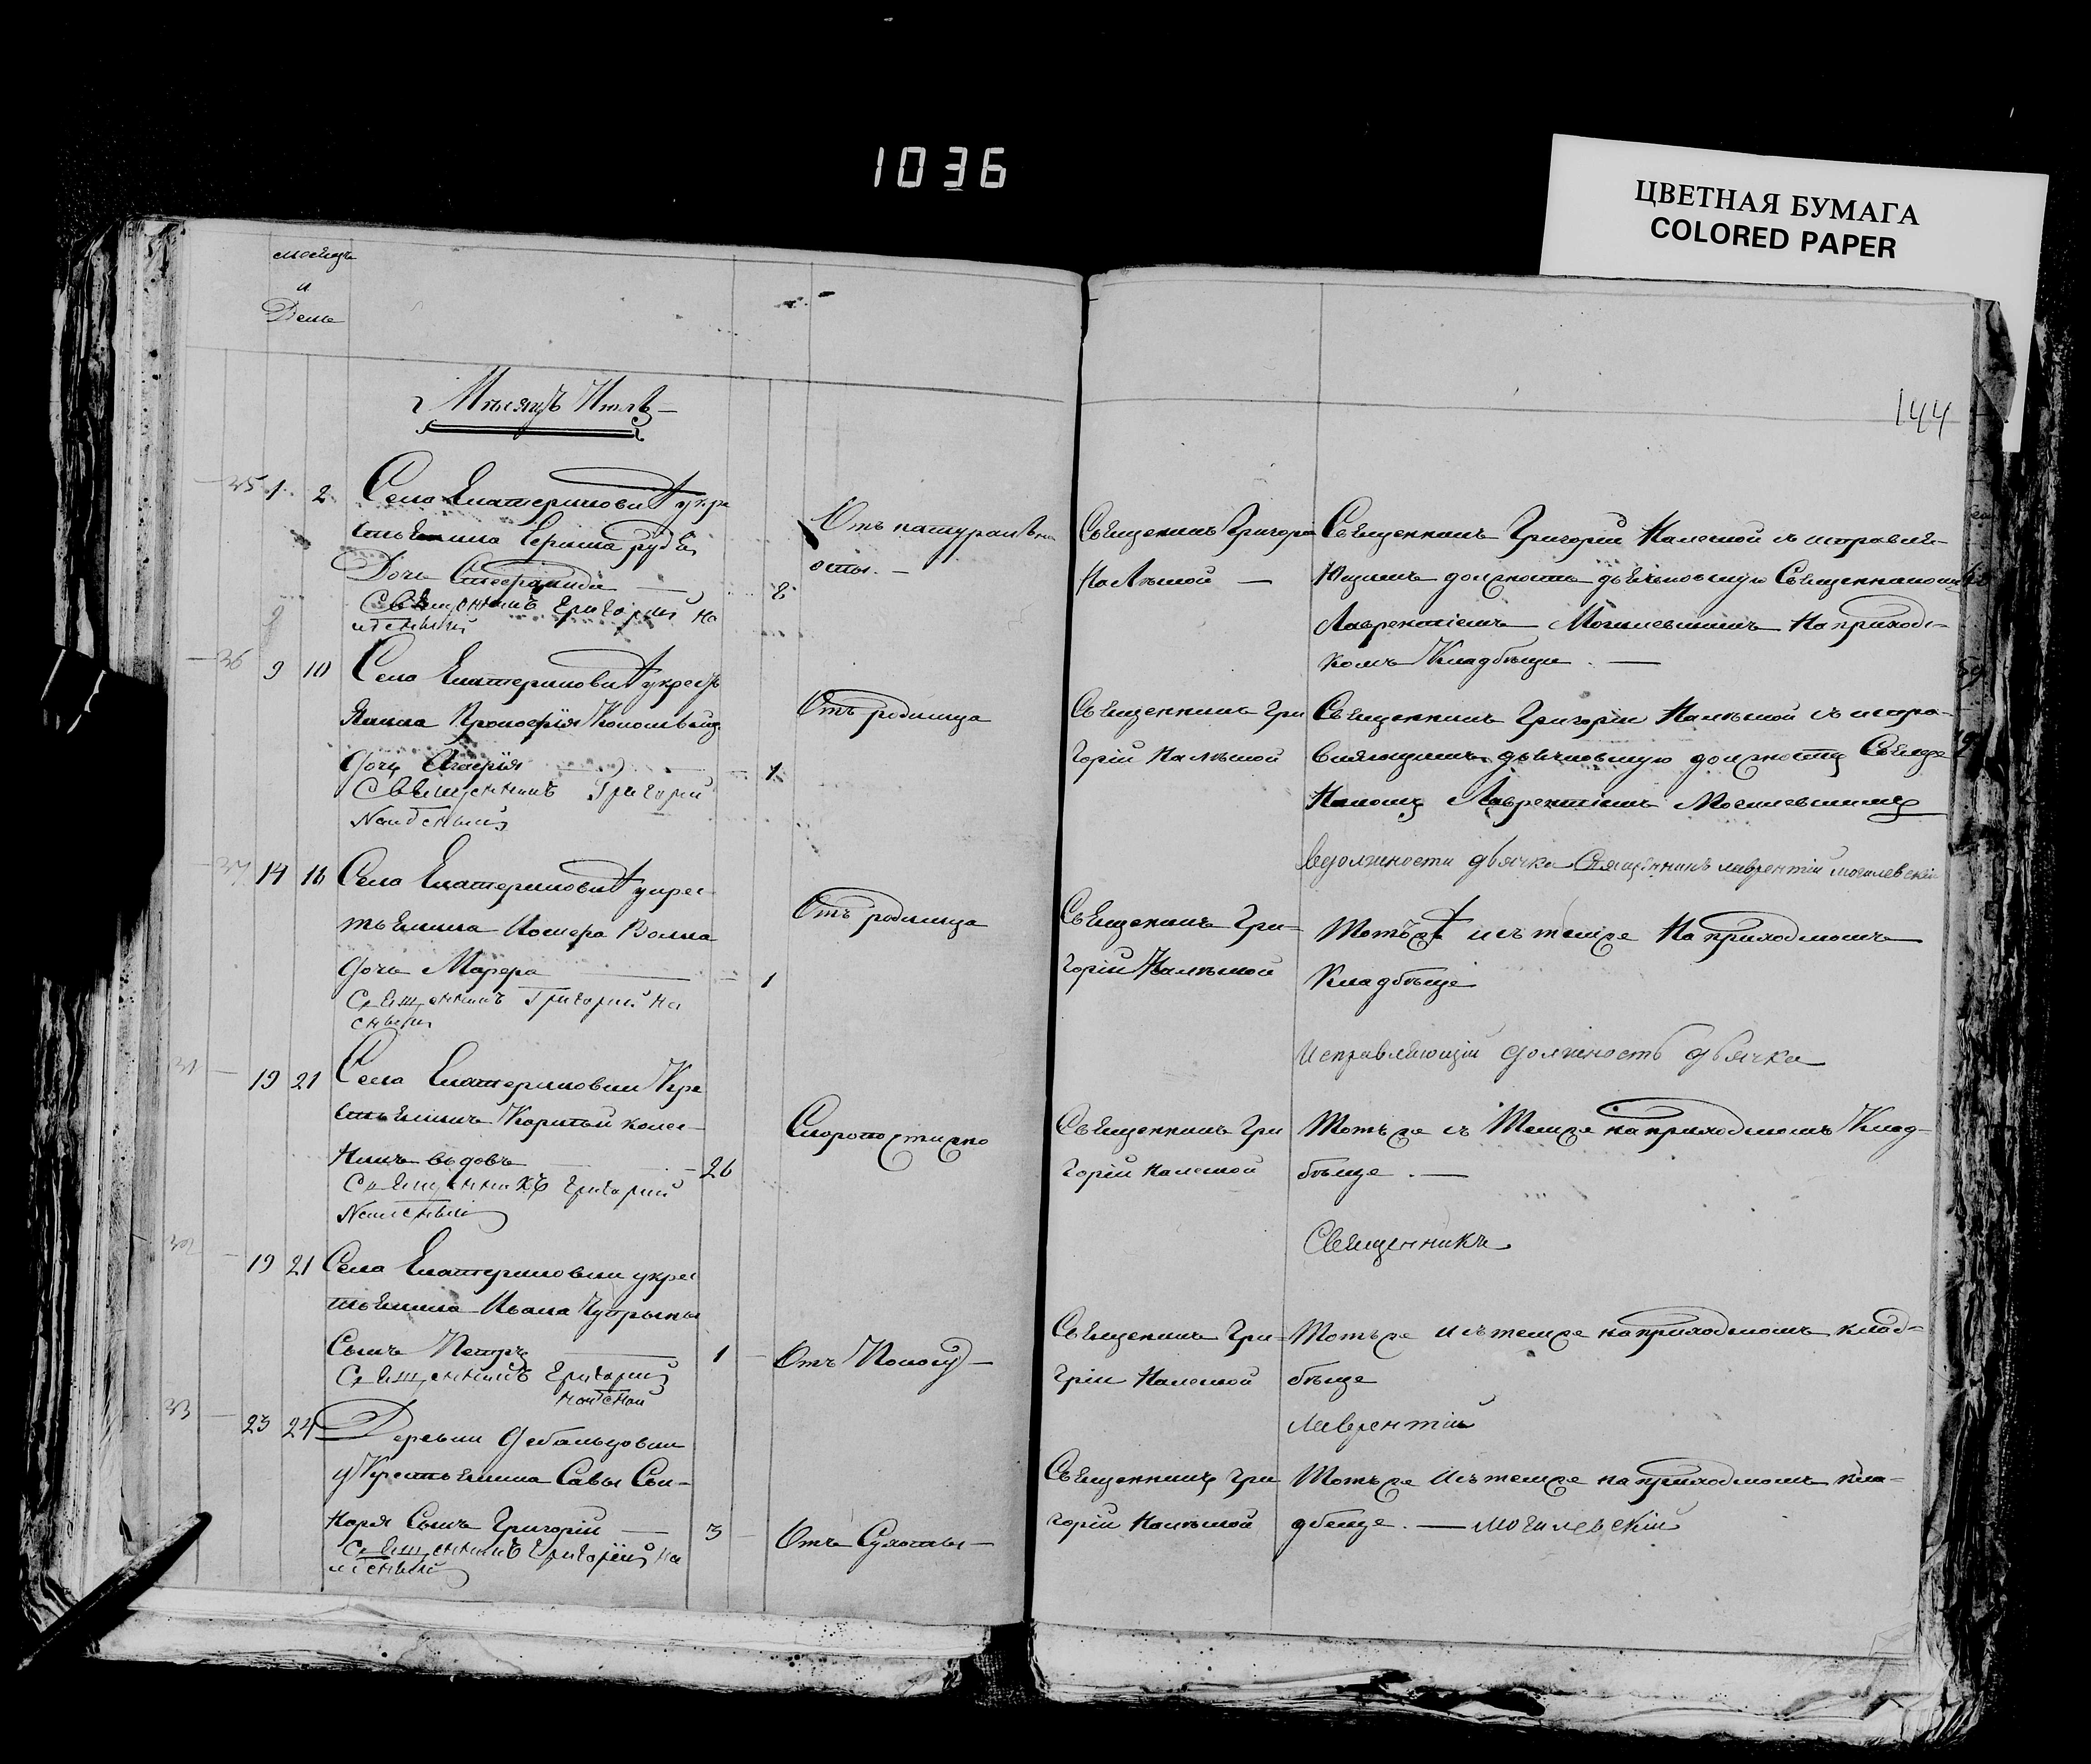 1036
ЦВЕТНАЯ БУМАГА
COLORED PAPER
мѣсяцъ
и
День
144
Мѣсяцъ Июль
1 2 Села Екатериновки укре
стьянина рудя
Дочь 2
Священникъ Григорий На
Отъ натуральн
ости. —
Священикъ Григори
Налѣсной —
Священникъ Григорій Налесной съ исправля-
ющимъ должность дьячковскую Священникомъ
Лаврентіемъ Могилевскимъ На приходс-
комъ Кладбищи. —
36 9 10 Села Екатериновки укресть
янина Прокофія
дочь 1
Священникъ Григорий
Налесный
Отъ родимца
Священникъ Гри
горій Налѣсной
Священникъ Григорій Налѣсной съ испра-
вляющимъ дьячковскую должность Священ
Никомъ Лаврентіемъ Могилевскимъ
вдолжности дьячка Священникъ лаврентій могилевскій
14 16 Села Екатериновки укрес
тьянина Волка
дочь 1
Священникъ Григорий На
Отъ родимца
Священникъ Гри-
горій Налѣсной
Тотъже исъ темже На приходскомъ
Кладбыще
Исправляющій должность дьячка
19 21 Села Екатериновки Кре
стьянинъ
вдовъ 26
Священникъ Григорий
Налесный
Скоропостижно
Священникъ Гри
горій Налесной
Тотъ же съ Темже на приходскомъ Клад-
быще. —
Священникъ
19 21 Села Екатериновки укрес
тьянина Ивана Чупрыны
Сынъ Петръ 1
Священникъ Григорий
Отъ Поносу —
Священикъ Гри-
грій Налесной
Тотъ же исъ темже на приходскомъ клад-
быще
Лаврентій
33 23 24 Деревни Дебальцовки
укрестьянина Савы Сви-
наря Сынъ Григорій — 3
Священникъ Григорій На
Отъ Сухоты —
Священникъ Гри
горій Налѣсной
Тотъ же исъ темже на приходскомъ кла-
дбеще. — Могилевскій